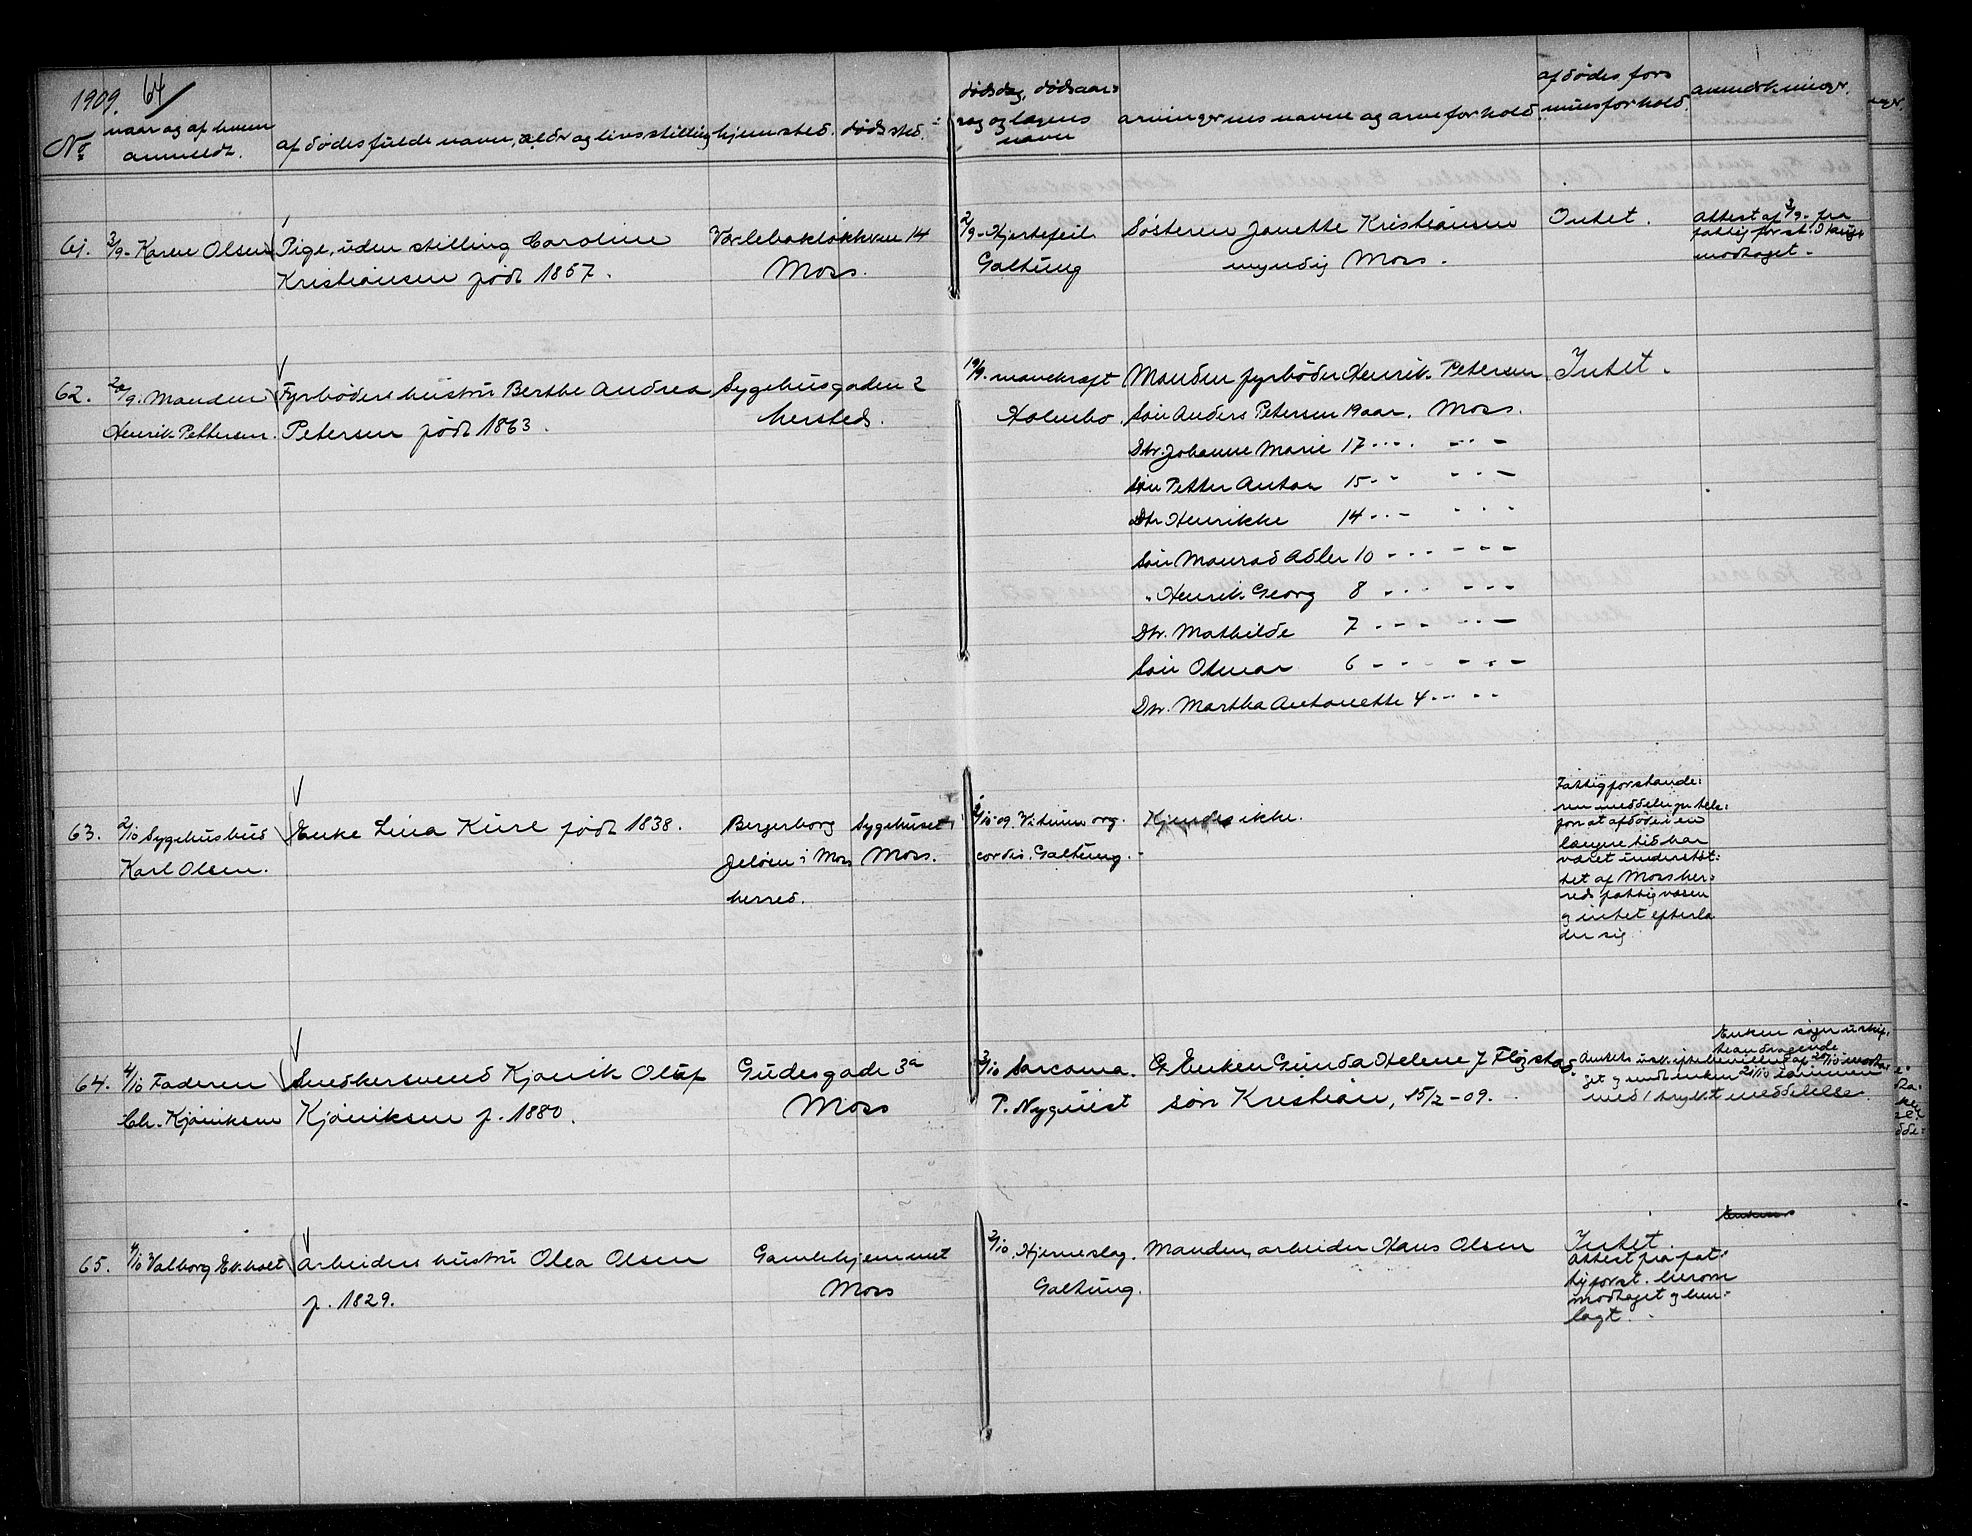 1909. 64/
No
naar og af hvem
anmeldt.
afdødes fulde navn, alder og livsstilling
hjemsted.
dødsted
dødsdag, dødsaar-
sag og lægens
navn
arvingernes navne og arveforhold.
afdødes for-
muesforhold.
anmerkninger.
61. 3/9- Karen Olsen
Pige, uden stilling Caroline
Kristiansen født 1857.
Varlebakløkken 14
Moss.
2/9- Hjertefeil
Galtung
Søsteren Janette Kristiansen
myndig Moss.
Intet.
Attest af 3/9- fra
fattigforst. Hauge
modtaget.
62. 20/9. Manden
Henrik Pettersen.
Fyrbøders hustru Berthe Andrea
Petersen født 1863.
Sygehusgaden 2
hersteds.
19/9. mavekræft
Holmbo.
Manden fyrbøder Henrik Petersen
Søn Anders Petersen 19 aar. Moss.
Dtr. Johanne Marie 17 - - - - - -
Søn Petter Anton 15 - - - - -
Dtr Henrikke 14 - - - - - -
Søn Monrad Adler 10 - - - - - -
" Henrik Georg 8 - - - - - -
Dtr. Mathilde 7 - - - - - -
Søn Otmar 6 - - - - - -
Dtr. Martha Antonette 4 - - - -
Intet.
63. 2/10 Sygehusbud
Karl Olsen.
Enke Lina Kure født 1838.
Bergerborg
Jeløen i Moss
herred.
Sygehuset
Moss.
2/10 09. Vitium org.
cordis. Galtung.
Kjendes ikke.
Fattigforstande-
ren meddeler pr tele-
fon at afdøde i en
længre tid har
været understøt-
tet af Moss her-
reds fattigvæsen
og intet efterla-
der sig
64. 4/10 Faderen
Chr. Kjøniksen
Smedkersvend Kjønik Oluf
Kjøniksen f. 1880.
Gudesgade 3a
Moss
3/10 Sarcoma.
P. Nyquist
Enken Gunda Helene f. Fløjstad
søn Kristian, 15/2-09.
Enken søger uskif-
teandragende
Amtets uskiftebevilling af 20/10 modta-
get og sendt enken 21/10 sammen
med 1 trykt meddelelse.
65. 4/10 Valborg Ekholt
Arbeiders hustru Olea Olsen
f. 1829.
Gamlehjemmet
Moss
3/10. Hjerneslag.
Galtung.
Manden, arbeider Hans Olsen
Intet.
Attest fra fat-
tigforst. herom
modtaget og hen-
lagt.